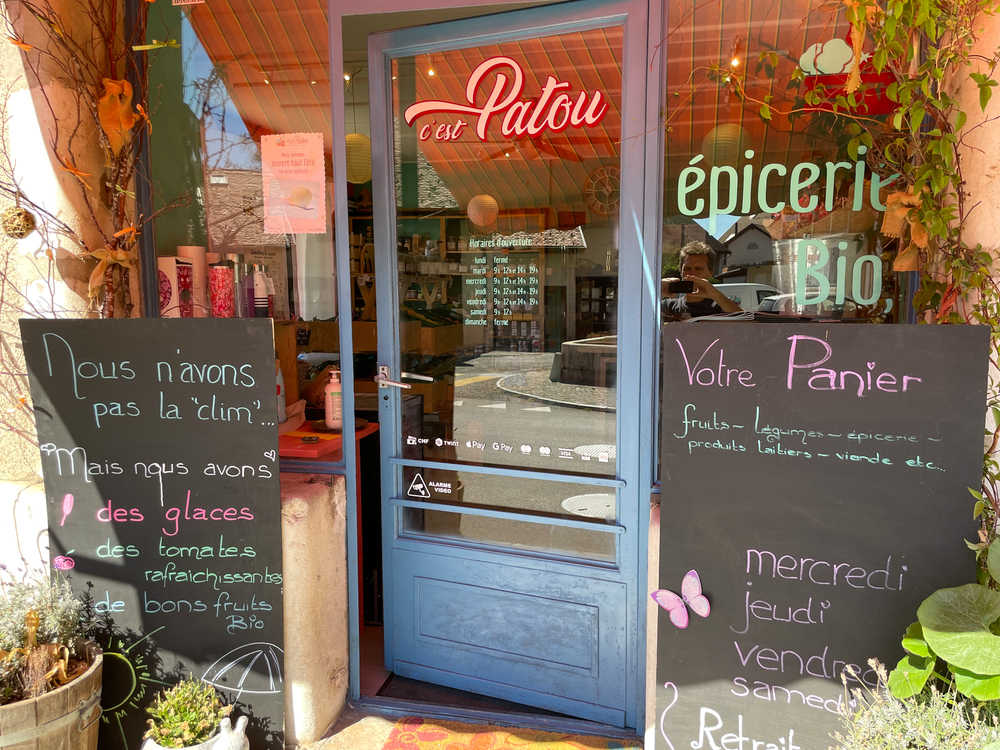 c'est Patou
ouvert tout l'été
épicerie
Bio,
Horaires d'ouverture
lundi fermé
mardi 9h 12h et 14h 19h
mercredi 9h 12h et 14h 19h
jeudi 9h 12h et 14h 19h
vendredi 9h 12h et 14h 19h
samedi 9h 12h
dimanche fermé
CHF TWINT Pay G Pay VISA
ALARME
VIDEO
Nous n'avons
pas la "clim"...
Mais nous avons
des glaces
des tomates
rafraichissantes
de bons fruits
Bio
Votre Panier
fruits ~ légumes ~ épicerie ~
produits laitiers ~ viande etc...
mercredi
jeudi
vendredi
samedi
Retrait